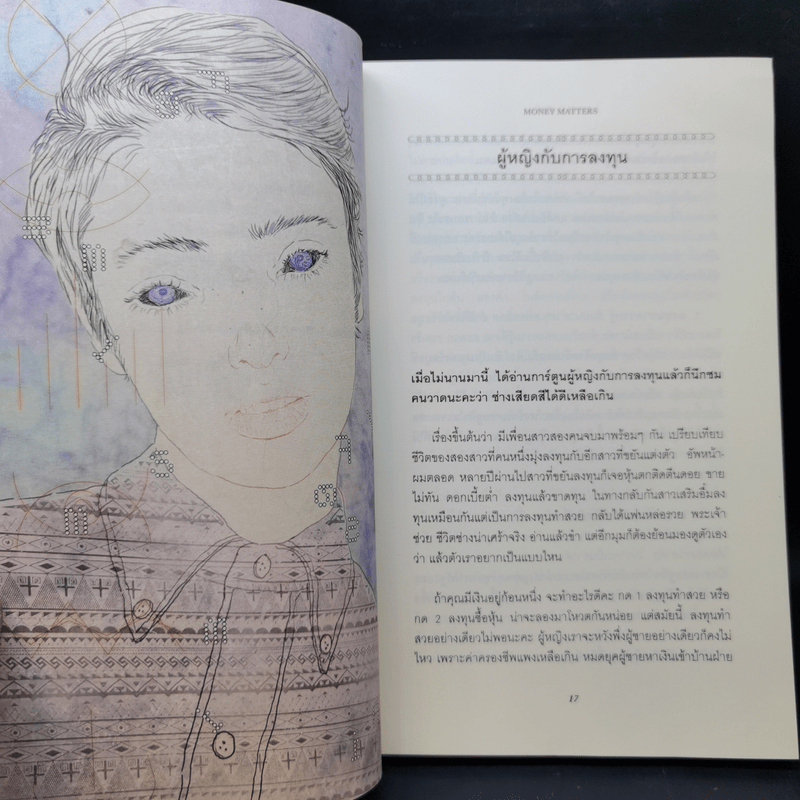 MONEY MATTERS
ผู้หญิงกับการลงทุน
เมื่อไม่นานมานี้ ได้อ่านการ์ตูนผู้หญิงกับการลงทุนแล้วก็นึกชม
คนวาดนะคะว่า ช่างเสียดสีได้ดีเหลือเกิน
เรื่องขึ้นต้นว่า มีเพื่อนสาวสองคนจบมาพร้อมๆ กัน เปรียบเทียบ
ชีวิตของสองสาวที่คนหนึ่งมุ่งลงทุนกับอีกสาวที่ขยันแต่งตัว อัพหน้า-
ผมตลอด หลายปีผ่านไปสาวที่ขยันลงทุนก็เจอหุ้นตกติดตีนดอย ขาย
ไม่ทัน ดอกเบี้ยต่ำ ลงทุนแล้วขาดทุน ในทางกลับกันสาวเสริมอึ๋มลง
ทุนเหมือนกันแต่เป็นการลงทุนทำสวย กลับได้แฟนหล่อรวย พระเจ้า
ช่วย ชีวิตช่างน่าเศร้าจริง อ่านแล้วขำ แต่อีกมุมก็ต้องย้อนมองดูตัวเอง
ว่า แล้วตัวเราอยากเป็นแบบไหน
ถ้าคุณมีเงินอยู่ก้อนหนึ่ง จะทำอะไรดีคะ กด 1 ลงทุนทำสวย หรือ
กด 2 ลงทุนซื้อหุ้น น่าจะลองมาโหวตกันหน่อย แต่สมัยนี้ ลงทุนทำ
สวยอย่างเดียวไม่พอนะคะ ผู้หญิงเราจะหวังพึ่งผู้ชายอย่างเดียวก็คงไม่
ไหว เพราะค่าครองชีพแพงเหลือเกิน หมดยุคผู้ชายหาเงินเข้าบ้านฝ่าย
17